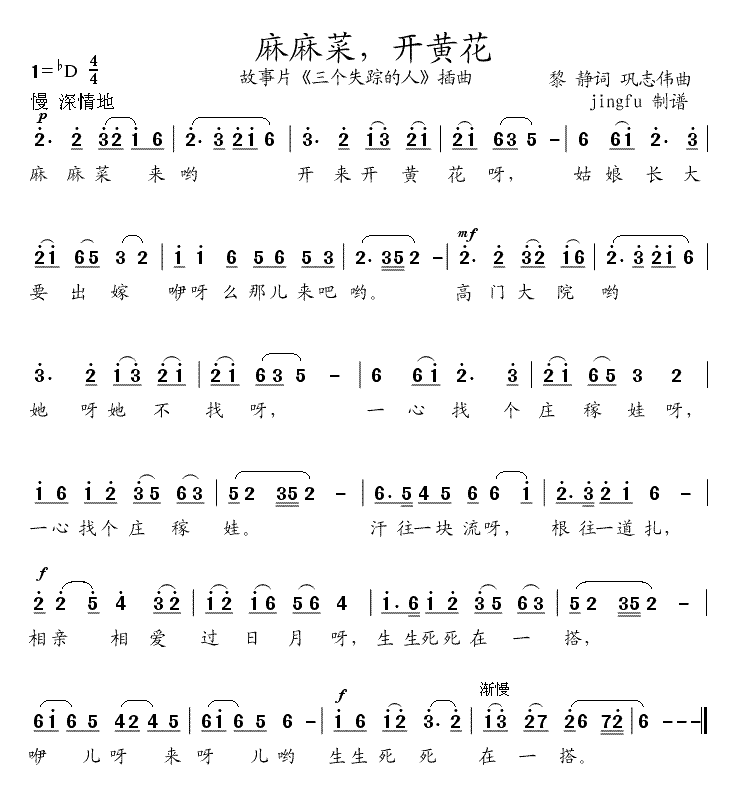 麻麻菜，开黄花
1=♭D 4/4
故事片《三个失踪的人》插曲
黎 静词 巩志伟曲
慢 深情地
jingfu 制谱
p
2̇· 2̇ 3̇2̇1̇ 6 | 2̇· 3̇2̇1̇6 | 3̇· 2̇ 1̇3̇ 2̇1̇ | 2̇1̇ 635 - | 6 61̇ 2̇· 3̇ |
麻 麻菜 来哟 开来开黄花呀，姑娘长大
mf
2̇1̇ 65 3 2 | 1̇ 1̇ 6 5 6 5 3 | 2· 352 - | 2̇· 2̇ 3̇2̇ 1̇6 | 2̇· 3̇2̇1̇6 |
要出嫁 咿呀么那儿来吧哟。 高门大院哟
3̇· 2̇ 1̇3̇ 2̇1̇ | 2̇1̇ 635 - | 6 61̇ 2̇· 3̇ | 2̇1̇ 65 3 2 |
她呀她不找呀， 一心找个庄稼娃呀，
1̇ 6 1̇ 2̇ 3̇5 63 | 52 352 - | 6· 5 4 5 6 6 1̇ | 2̇· 3̇ 2̇ 1̇ 6 - |
一心找个庄稼娃。 汗往一块流呀， 根往一道扎，
f
2̇ 2̇ 5̇ 4̇ 3̇2̇ | 1̇2̇ 1̇6 56 4 | 1̇· 6 1̇ 2̇ 35 63 | 52 352 - |
相亲 相爱过日月呀，生生死死在一搭，
f 渐慢
61̇6 5 42 4 5 | 61̇6 5 6 - | 1̇ 6 1̇2̇ 3̇· 2̇ | 1̇3̇ 2̇7 2̇6 72̇ | 6 - - - ‖
咿儿呀来呀儿哟 生生死死在一搭。